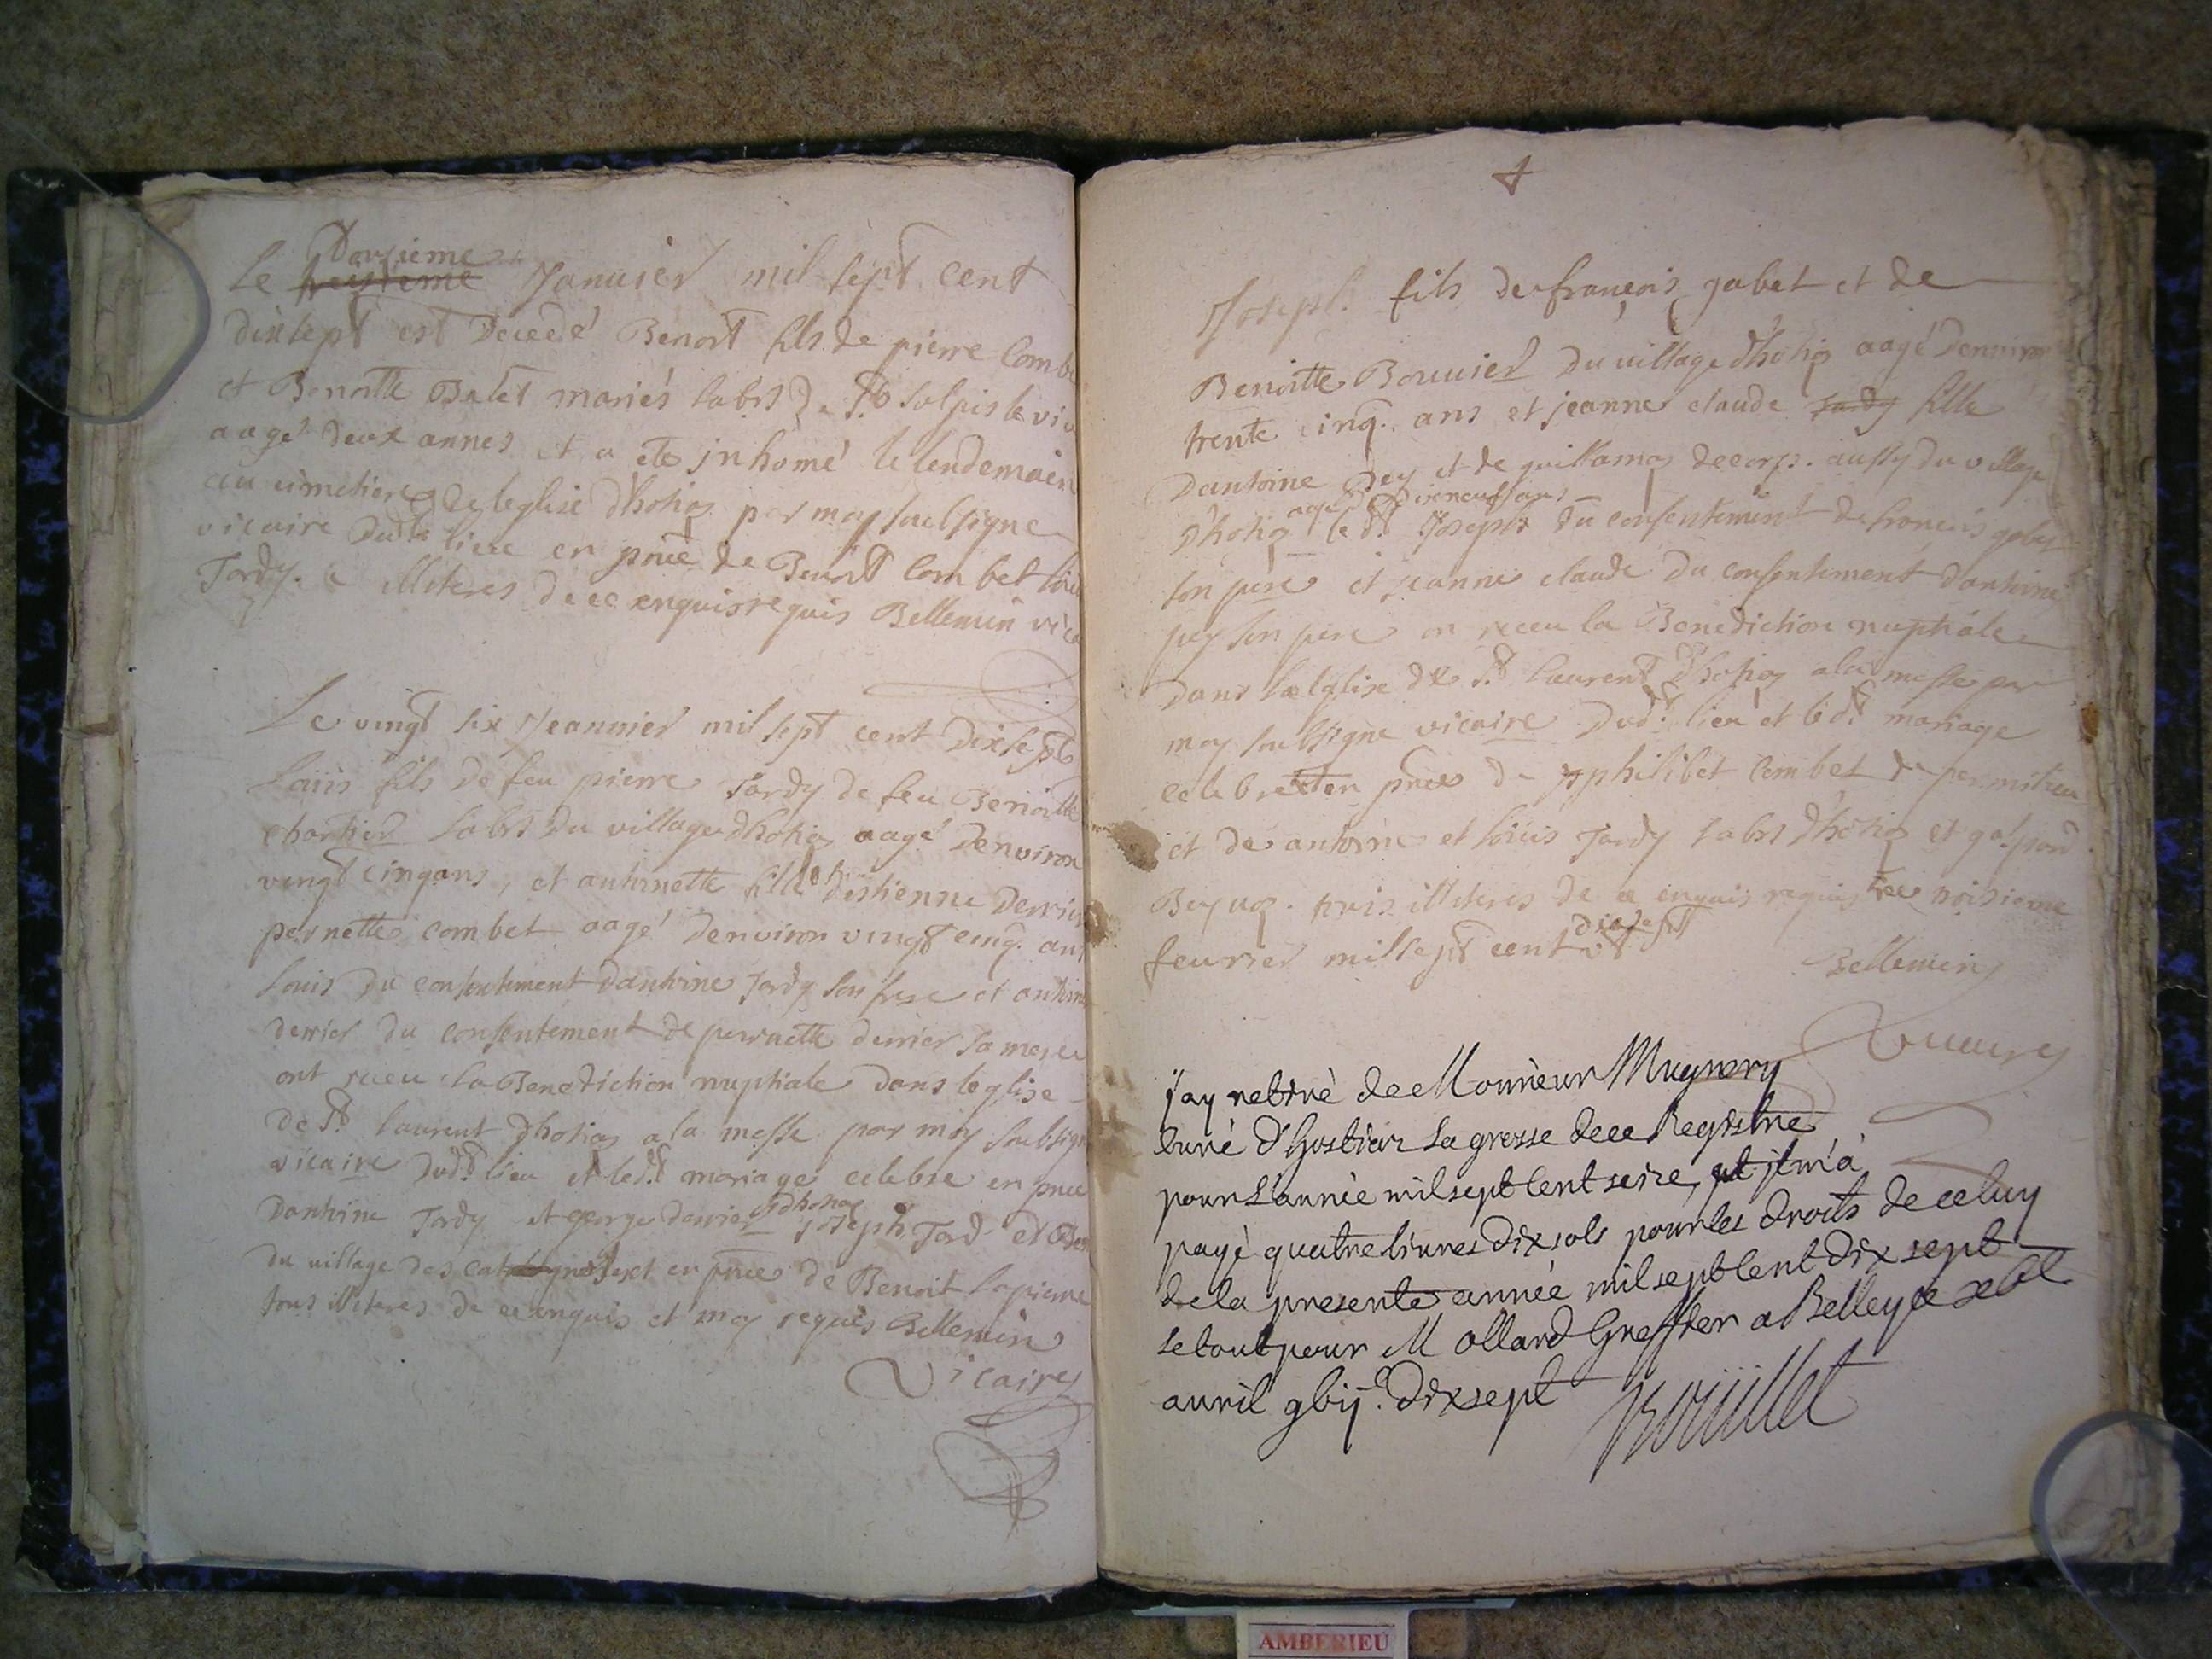 Le Dousieme Januier mil sept cent
dixsept est decedé Benoit fils de pierre Combe
et Benoitte Balet mariés labrs de St Solpis le vi
aagé deux annes et a ete jnhomé le lendemain
au cimetiere de leglise dhotiaz par moy soubsigne
vicaire dudt lieu en pnce de Benoit Combet
Tardy. illiteres de ce enquis requis Bellemin vic
Le vingt six Jeanuier mil sept cent dixsept
Loüis fils de feu pierre Tardy de feu Benoitte
Chartier labrs du village dhotiaz aagé denviron
vingt cinq ans, et anthoinette fille destienne Derrier
pernette combet aagé denviron vingt cinq. ans
Louis du consentement danthoine Tardy son frere et anthoin
derrier du consentement de pernette derrier sa mere
ont receu la Benediction nuptiale dans leglise
de St laurent dhotiaz a la messe par moy soubsign
vicaire dudt. lieu et ledt. mariage celebre en pnce
Danthoine Tardy et george derrier dhotiaz joseph Tard et
du village des et en pnce de Benoit Lapierre
tous illiteres de ce enquis et moy requis Bellemin
Vicaire
Joseph fils de françois gobet et de
Benoitte Bouuier du village dhotiaz aagé denuiron
trente cinq. ans et jeanne claude tardy fille
Dantoine pey et de guillamaz decorp. aussy du village
dhotiaz agé dixneuf ans le dt. Joseph du consentement de francois gobet
son pere et jeanne claude du consentement dantoine
pey son pere on receu la Benediction nuptiale
dans laeglise de St laurent dhotiaz a la messe par
moy soubsigne vicaire dudt. lieu et ledt mariage
celebre en pnce de philibet Combet
et de antoine et loüis Tardy labrs dhotiaz et gaspard
illiteres de ce enquis requis ce troisieme
feurier mil sept cent dixsept
Bellemin
Vicaire
j'ay retiré de Monsieur Mugnery
Curé d'hostiaz La grosse de ce Registre
pour L'année mil sept Cent seize, et jl m'a
payé quatre livres dix sols pour les droits de celuy
de la presente année mil sept Cent dix sept
Le tout pour M ollard Greffier a Belley ce
auril gbijc. dixsept Roüillet
AMBERIEU